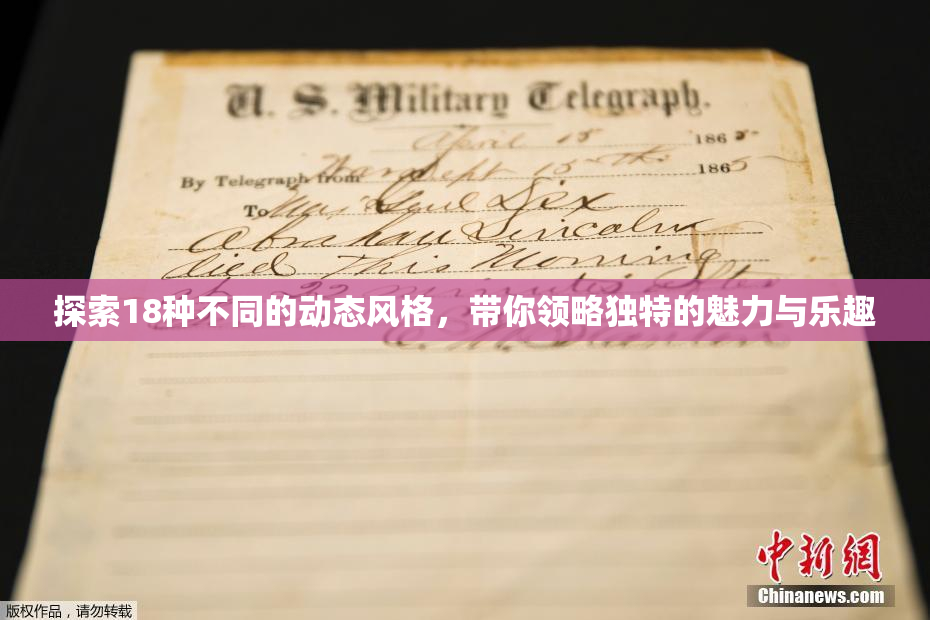 U. S. Military Telegraph.
April 15 1865
By Telegraph from War Dept 15th 1865
To Maj Genl Dix
Abraham Lincoln
died This Morning
at 22 minutes after
探索18种不同的动态风格，带你领略独特的魅力与乐趣
E. M. Stanton
中新网
Chinanews.com
版权作品，请勿转载